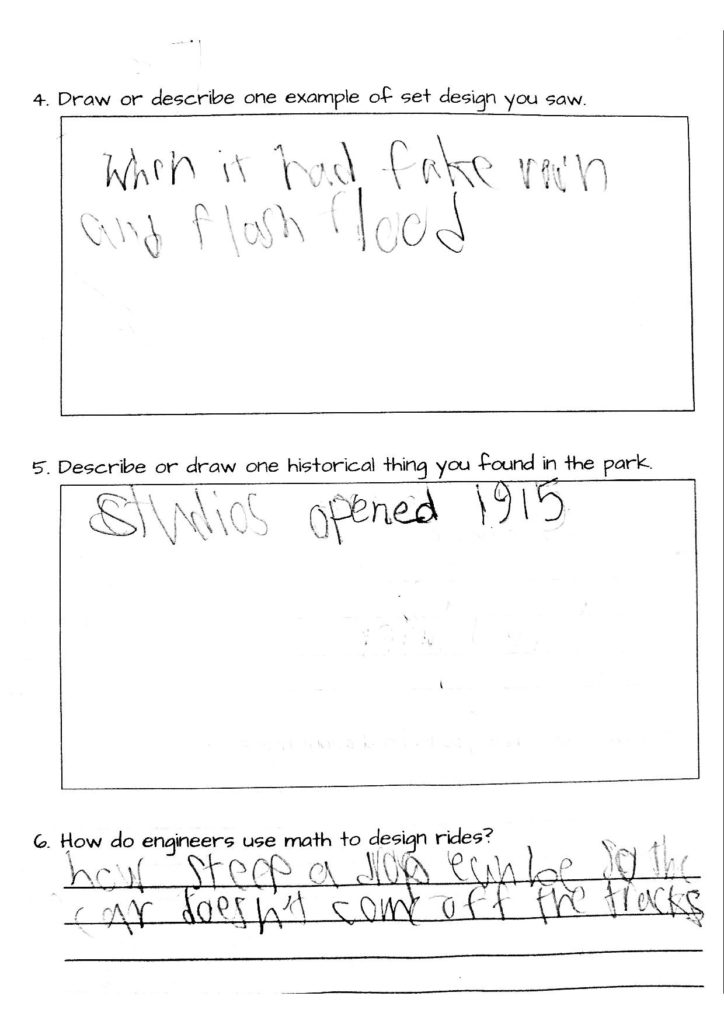 4. Draw or describe one example of set design you saw.
when it had fake rain
and flash flood
5. Describe or draw one historical thing you found in the park.
Studios opened 1915
6. How do engineers use math to design rides?
how steep a drop can be so the
car doesn't come off the tracks